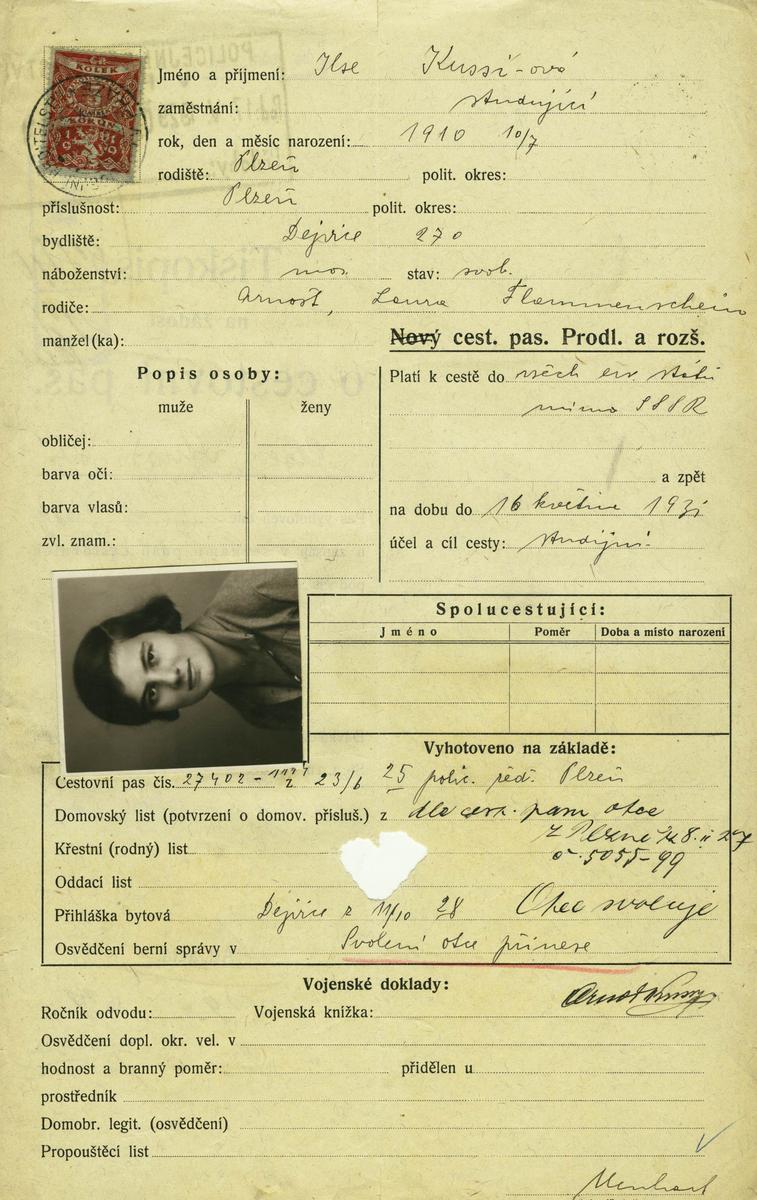 Č.R.
KOLEK
KORUN
1919
Jméno a příjmení: Ilse Kussi-ová
zaměstnání: studující
rok, den a měsíc narození: 1910 10/7
rodiště: Plzeň polit. okres:
příslušnost: Plzeň polit. okres:
bydliště: Dejvice 270
náboženství: mos. stav: svob.
rodiče: Arnošt, Laura Flammenschein
manžel(ka): Nový cest. pas. Prodl. a rozš.
Popis osoby:
muže ženy
obličej:
barva očí:
barva vlasů:
zvl. znam.:
Platí k cestě do všech evr. států
mimo SSSR
a zpět
na dobu do 16 května 193
účel a cíl cesty: studijní
Spolucestující:
Jméno Poměr Doba a místo narození
Vyhotoveno na základě:
Cestovní pas čís. 27402 23/6 25 polic. řed. Plzeň
Domovský list (potvrzení o domov. přísluš.) z dle cest. pasu otce
z Plzně 8. II 27
Křestní (rodný) list č. 5055-99
Oddací list
Přihláška bytová Dejvice z 11/10 28 Otec svoluje
Osvědčení berní správy v Svolení otce přinese
Vojenské doklady:
Ročník odvodu: Vojenská knížka:
Osvědčení dopl. okr. vel. v
hodnost a branný poměr: přidělen u
prostředník
Domobr. legit. (osvědčení)
Propouštěcí list